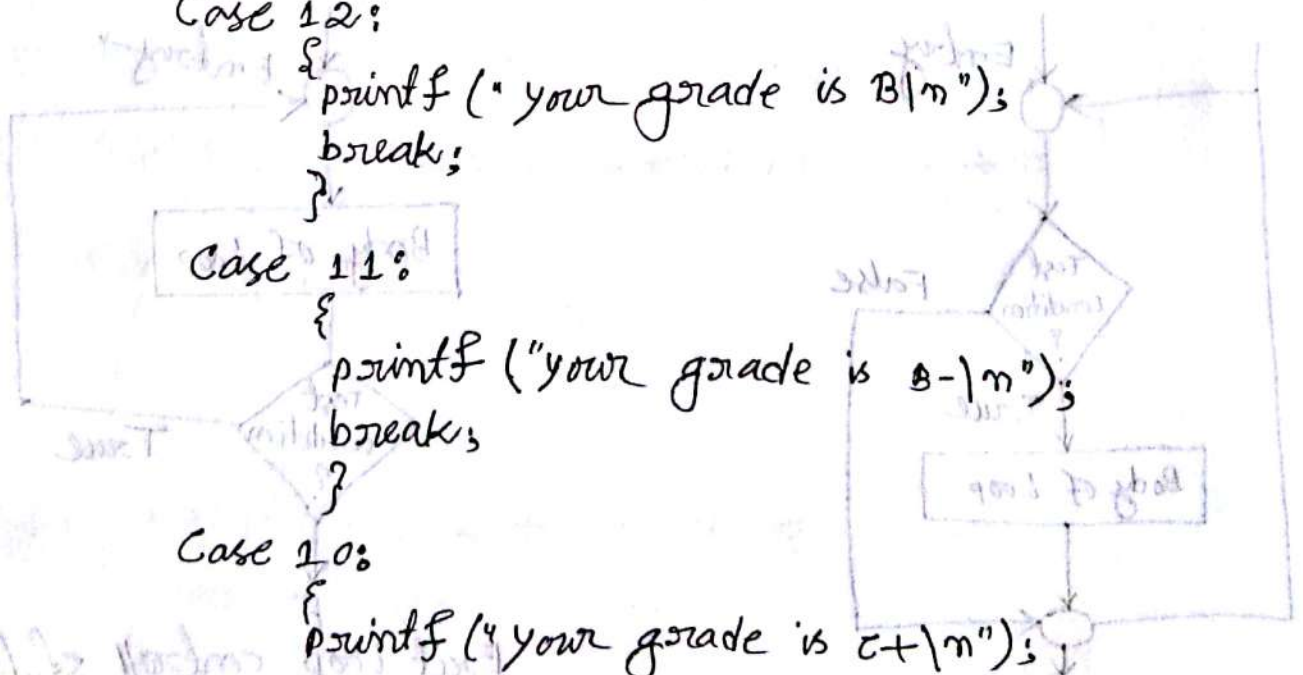 Case 12:
{
printf ("your grade is B\n");
break;
}
Case 11:
{
printf ("your grade is B-\n");
break;
}
Case 10:
{
printf ("your grade is C+\n");